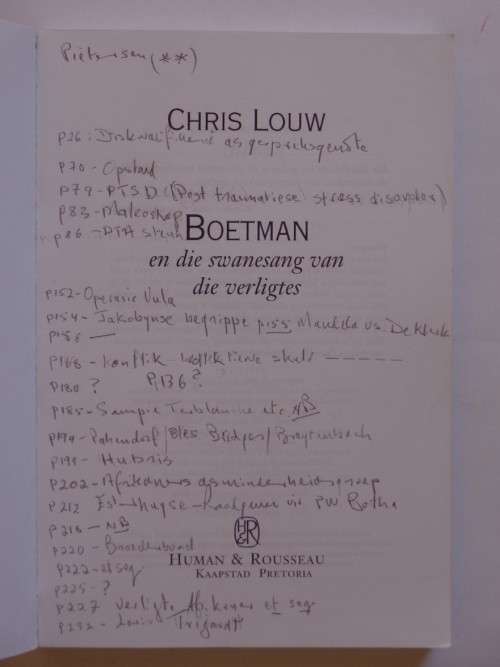 Pieterson (**)
CHRIS LOUW
P26: as gespreksgenote
P70 - Opstand
P79 - PTSD (Post traumatiese stress disorder)
P83 - Malcoshop
P86 -
BOETMAN
en die swanesang van
die verligtes
P152 - Operasie Vula
P154 - Jakobynse begrippe p155 Mandela vs De Klerk
P156 —
P168 - Konflik - kollektiewe skuld - - - - -
P180 ? P136?
P185 - Sampie Terblanche etc NB
P194 - / Bles Bridges / Breytenbach
P199 - Hubris
P202 - Afrikaners as minderheidsgroep
P212 Esterhuyse - vir PW Botha
P218 - NB
P220 - Broederbond
P222 - et seq
P225 - ?
H&R
HUMAN & ROUSSEAU
KAAPSTAD PRETORIA
P227 Verligte Afrikaner et seq
Louis Trigardt